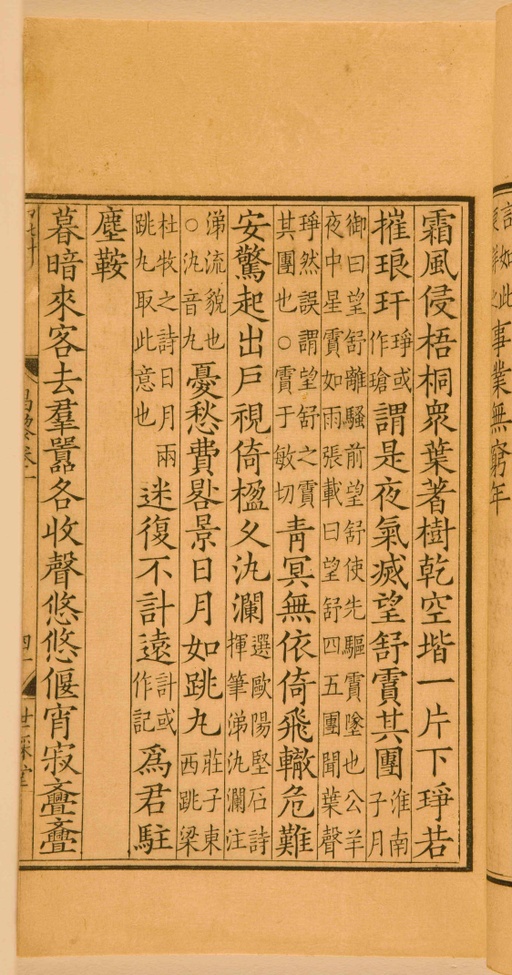 事業無窮年
霜風侵梧桐衆葉著樹乾空堦一片下琤若
摧琅玕琤或作瑲謂是夜氣滅望舒霣其團淮南子月
御曰望舒離騷前望舒使先驅霣墜也公羊
夜中星霣如雨張載曰望舒四五團聞葉聲
琤然誤謂望舒之霣其團也○霣于敏切青冥無依倚飛轍危難
安驚起出戸視倚楹夂汍瀾選歐陽堅石詩揮筆涕汍瀾注
涕流貌也○汍音丸憂愁費晷景日月如跳丸莊子東西跳梁
杜牧之詩日月兩跳丸取此意也迷復不計遠計或作記爲君駐
塵鞍
暮暗來客去羣囂各收聲悠悠偃宵寂亹亹